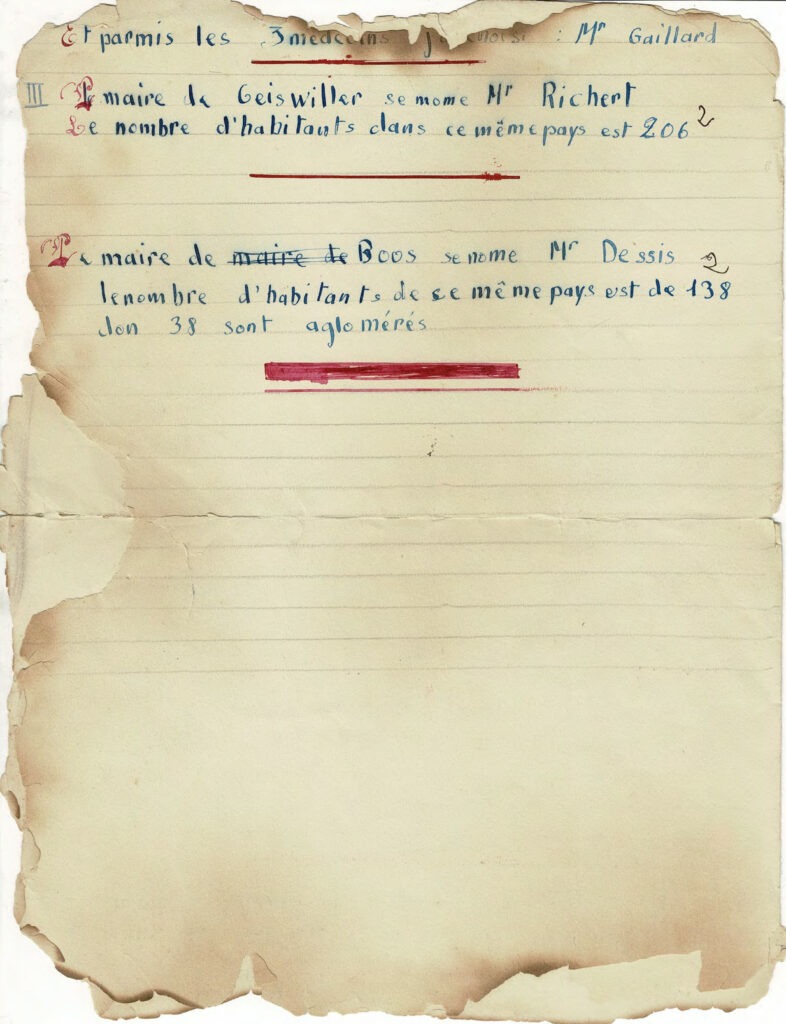 Et parmis les 3 medecins : Mr Gaillard
III Le maire de Geiswiller se mome Mr Richert
Le nombre d'habitants dans ce même pays est 206 2
Le maire de maire de Boos se nome Mr Dessis
le nombre d'habitants de se même pays est de 138 2
don 38 sont aglomérés